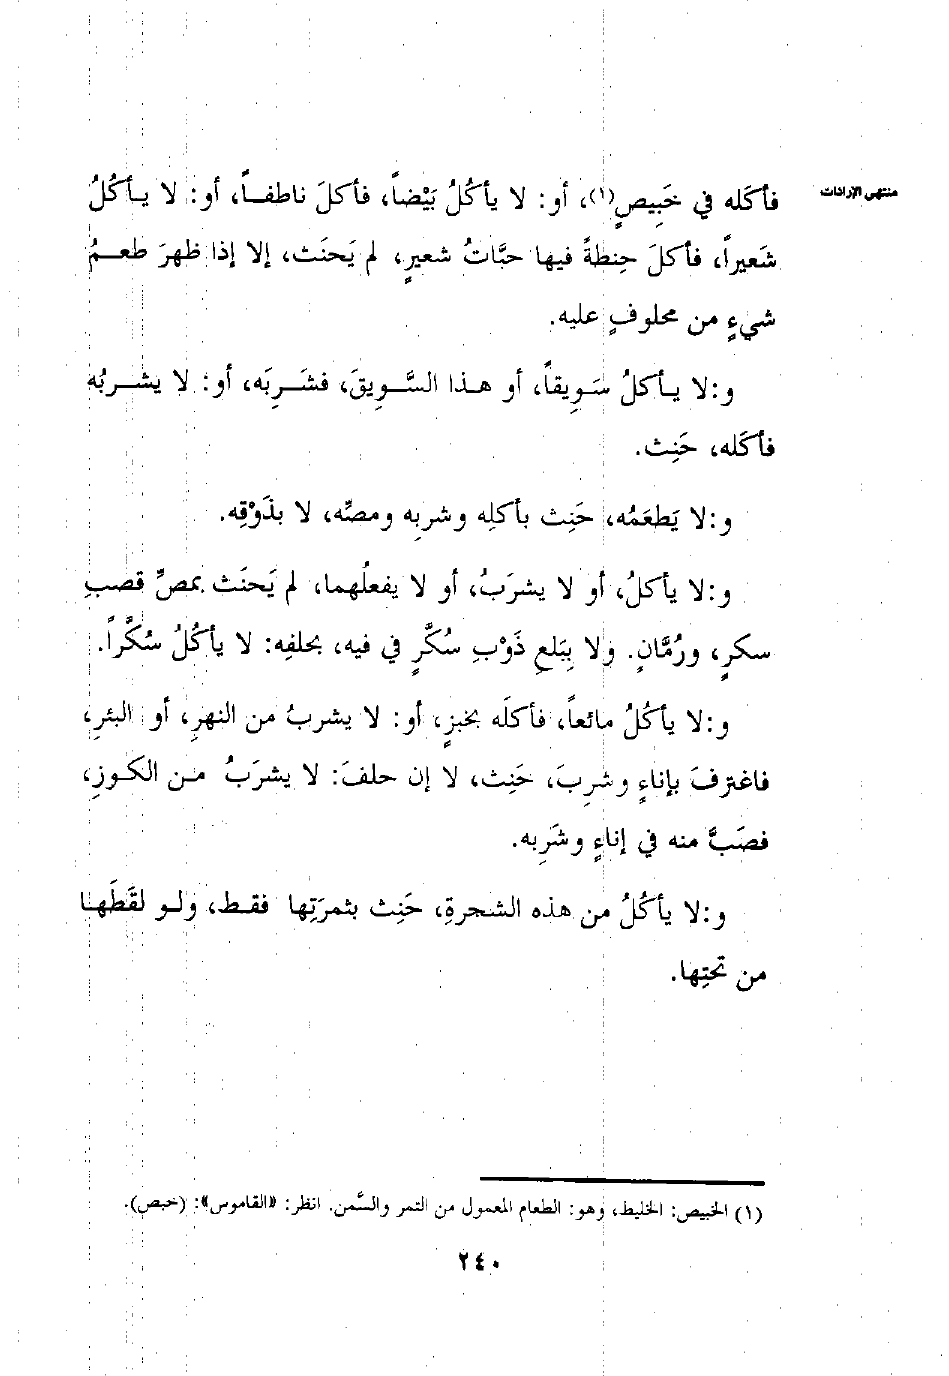 منتهى الإرادات
فأكَله في خَبِيصٍ(١)، أو: لا يأكُلُ بَيْضاً، فأكلَ ناطفـاً، أو: لا يـأكُلُ
شَعيراً، فأكلَ حِنطةً فيها حبَّاتُ شعيرٍ، لم يَحنَث، إلا إذا ظهرَ طعـمُ
شيءٍ من محلوفٍ عليه.
و:لا يـأكلُ سَـوِيقاً، أو هـذا السَّـوِيقَ، فشَـرِبَه، أو: لا يشـربُه
فأكَله، حَنِث.
و:لا يَطعَمُه، حَنِث بأكلِه وشربِه ومصِّه، لا بذَوْقِه.
و:لا يأكلُ، أو لا يشرَبُ، أو لا يفعلُهما، لم يَحنَث بمصِّ قصبِ
سكرٍ، ورُمَّانٍ. ولا بِبَلعِ ذَوْبِ سُكَّرٍ في فيه، بحلفِه: لا يأكُلُ سُكَّراً.
و:لا يأكُلُ مائعاً، فأكلَه بخبزٍ، أو: لا يشربُ من النهرِ، أو البئرِ،
فاغترفَ بإناءٍ وشرِبَ، حَنِث، لا إن حلفَ: لا يشرَبُ مـن الكـوزِ،
فصَبَّ منه في إناءٍ وشَرِبه.
و:لا يأكُلُ من هذه الشـجرةِ، حَنِث بثمرَتِها فقـط، ولـو لقَطَهـا
من تحتِها.
(١) الخبيص: الخليط، وهو: الطعام المعمول من التمر والسَّمن. انظر: «القاموس»: (خبص).
٢٤٠